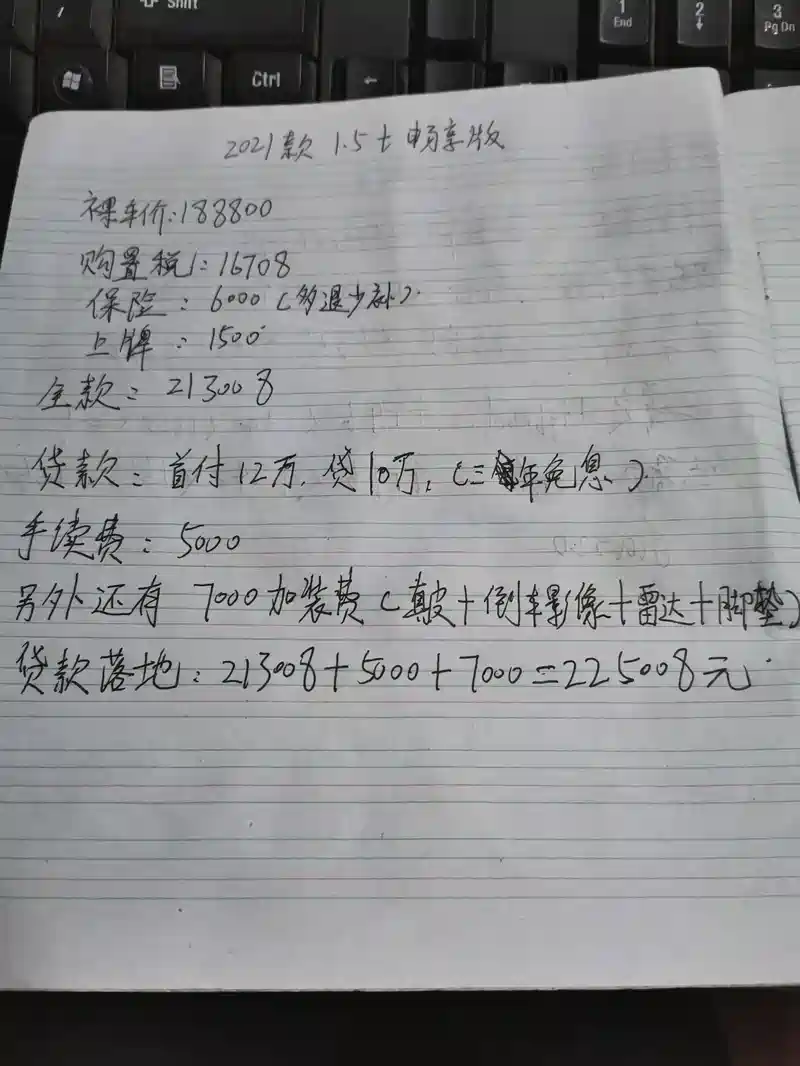 Shift
1
End
2
3
Pg Dn
Ctrl
2021款 1.5t 畅享版
裸车价:188800
购置税:16708
保险:6000(多退少补).
上牌:1500
全款:213008
贷款:首付12万,贷10万,(三年免息).
手续费:5000
另外还有 7000加装费(真皮+倒车影像+雷达+脚垫)
贷款落地:213008+5000+7000=225008元